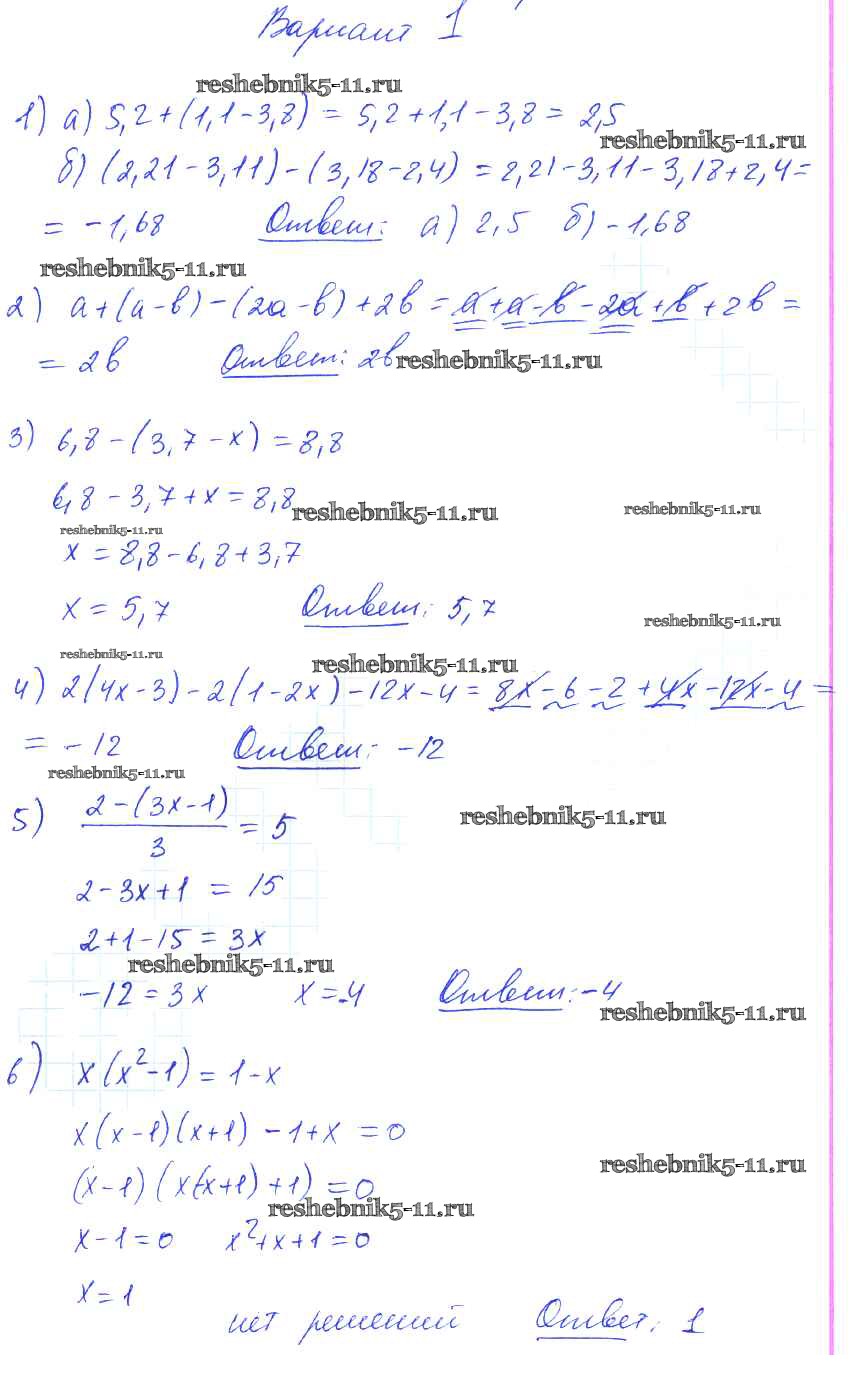 Вариант 1
reshebnik5-11.ru
1) а) 5,2+(1,1-3,8) = 5,2+1,1-3,8 = 2,5
reshebnik5-11.ru
б) (2,21-3,11)-(3,18-2,4) = 2,21-3,11-3,18+2,4=
= -1,68 Ответ: а) 2,5 б) -1,68
reshebnik5-11.ru
2) a+(a-b)-(2a-b)+2b = a+a-b-2a+b+2b =
= 2b Ответ: 2b reshebnik5-11.ru
3) 6,8-(3,7-x) = 8,8
6,8-3,7+x=8,8
reshebnik5-11.ru reshebnik5-11.ru
reshebnik5-11.ru
x = 8,8-6,8+3,7
x = 5,7 Ответ: 5,7
reshebnik5-11.ru
reshebnik5-11.ru reshebnik5-11.ru
4) 2(4x-3)-2(1-2x)-12x-4 = 8x-6-2+4x-12x-4 =
= -12 Ответ: -12
reshebnik5-11.ru
5) (2-(3x-1))/3 = 5
reshebnik5-11.ru
2-3x+1 = 15
2+1-15 = 3x
reshebnik5-11.ru
-12 = 3x x = -4 Ответ: -4
reshebnik5-11.ru
6) x(x²-1) = 1-x
x(x-1)(x+1) -1+x = 0
reshebnik5-11.ru
(x-1)(x(x+1)+1) = 0
reshebnik5-11.ru
x-1=0 x²+x+1=0
x=1
нет решений Ответ: 1